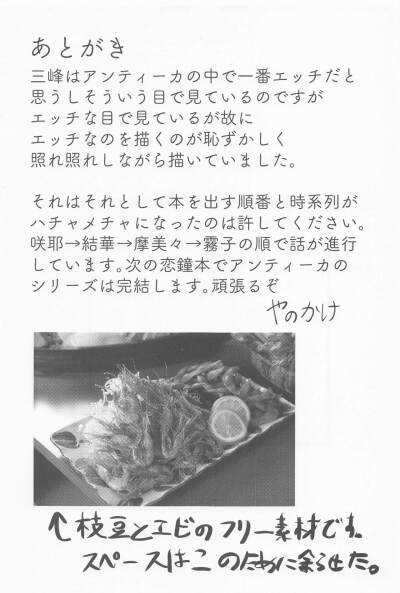 あとがき
三峰はアンティーカの中で一番エッチだと
思うしそういう目で見ているのですが
エッチな目で見ているが故に
エッチなのを描くのが恥ずかしく
照れ照れしながら描いていました。
それはそれとして本を出す順番と時系列が
ハチャメチャになったのは許してください。
咲耶→結華→摩美々→霧子の順で話が進行
しています。次の恋鐘本でアンティーカの
シリーズは完結します。頑張るぞ
やのかけ
↑枝豆とエビのフリー素材です。
スペースはこのために余らせた。